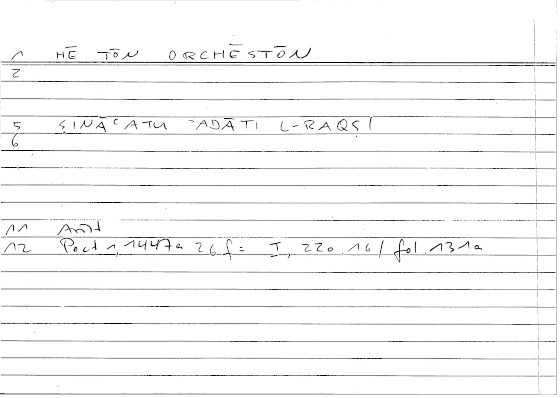 1 HĒ TŌN ORCHĒSTŌN
2
5 ṢINĀʿATU ʾADĀTI L-RAQṢI
6
11 Arist
12 Poet 1, 1447a 26f = I, 220.16 / fol. 131a